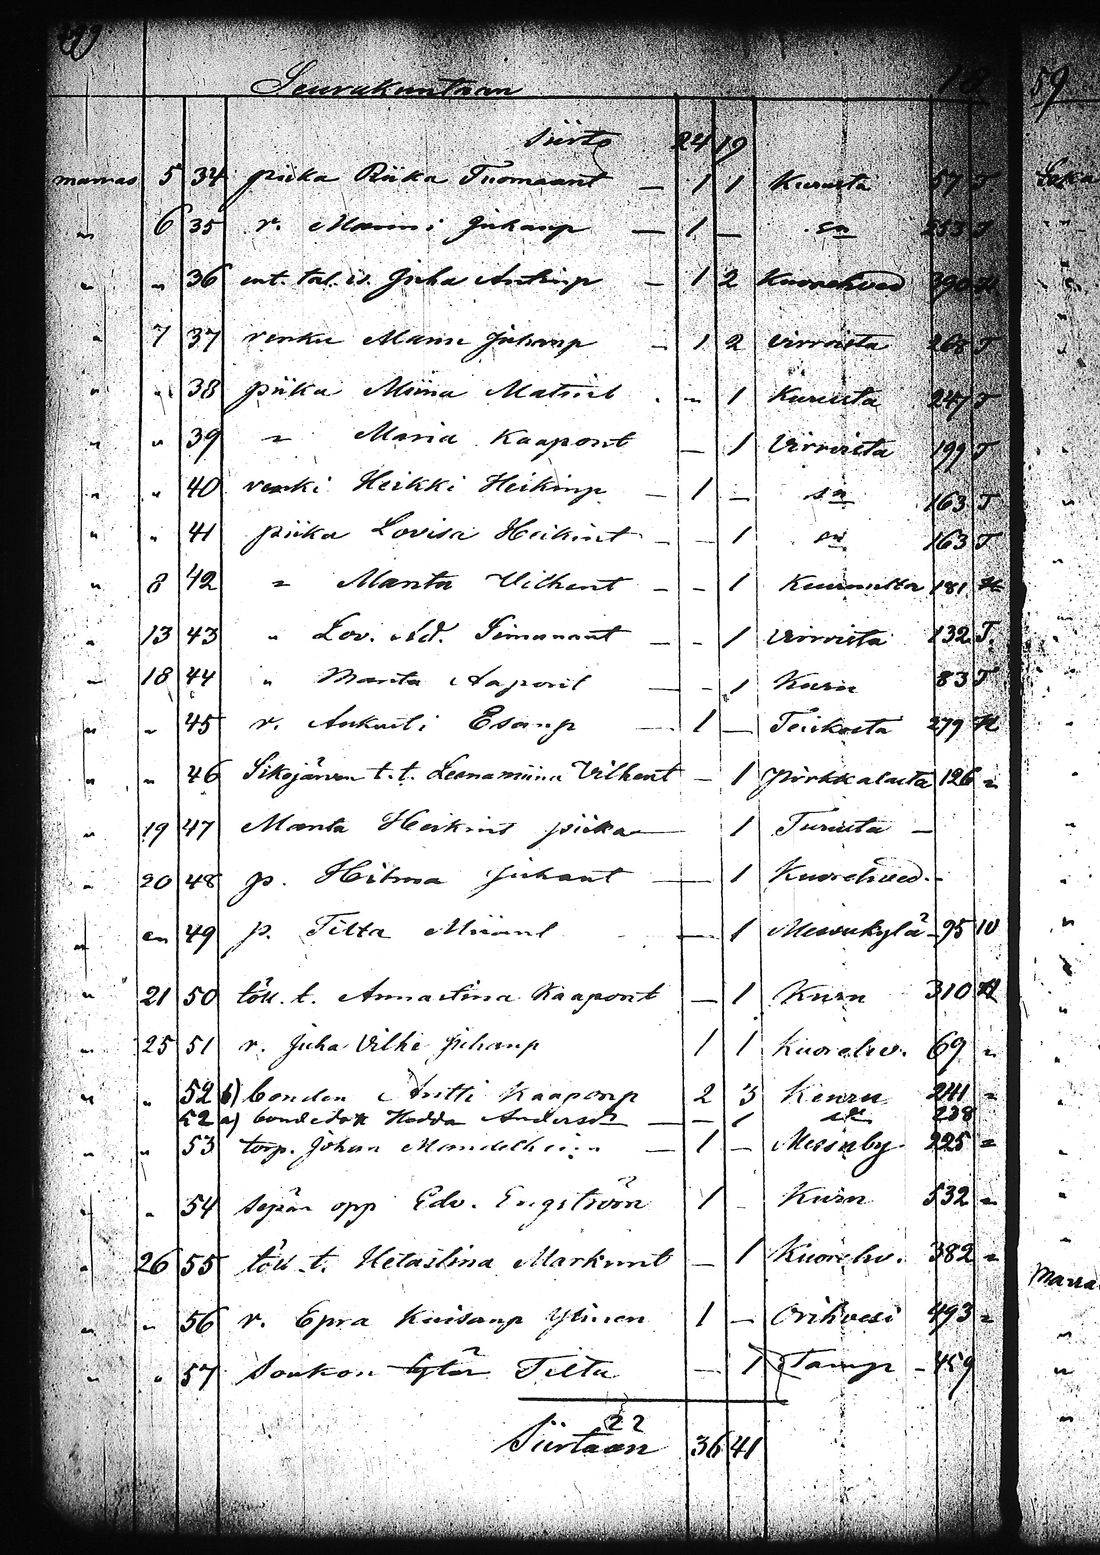 Seurakuntaan 18
59
Siirto 24 19
marras 5 34 piika Riika Tuomaant — 1 1 Kurusta 57 T
" 6 35 r. Manni Juhanp — 1 — sn 253 T
" " 36 ent. tal. is. Juha Anttinp — 1 2 Kuorehved 390
" 7 37 renki Manu Juhanp — 1 2 Virroista 268 T
" " 38 piika Miina Matint - " 1 Kurusta 247 T
" " 39 " Maria Kaapont — 1 Virroista 199 T
" " 40 renki Heikki Heikinp — 1 — sn 163 T
" " 41 piika Lovisa Heikint - - 1 sn 163 T
" 8 42 " Manta Vilhent - - 1 181
" 13 43 " Lov. Ad. Simanant — - 1 Virroista 132 T.
" 18 44 " Manta Aapont — - 1 Kuru 83 T
" " 45 r. Aukusti Esanp — 1 — Teiskosta 279 H
" " 46 t. t. Leenamiina Vilhent — 1 Pirkkalasta 126 "
" 19 47 Manta Heikint piika — 1 —
" 20 48 p. Hilma Juhant — 1 Kuorehved. -
" " 49 p. Tilta — 1 Messukylä - 95 10
" 21 50 töll. t. Annastina Kaapont — 1 Kuru 310 H
" 25 51 r. Juha Vilhe Juhanp 1 1 Kuorehv. 69 "
" " 52 b) bonden Antti Kaaponp 2 3 Keuru 241 "
52 a) Hedda Andersd — - 1 sn 238
" " 53 torp. Johan — 1 — Messuby 225 "
" " 54 sepän opp Edv. Engström 1 - Kuru 532 "
" 26 55 töll. t. Hetastina Markunt — 1 Kuorehv. 382 "
" " 56 r. Epra Kaisanp Ylinen 1 — Orihvesi 493 "
" " 57 Soukon tytär Tilta — 1 Tamp - 459
22
Siirtaan 36 41